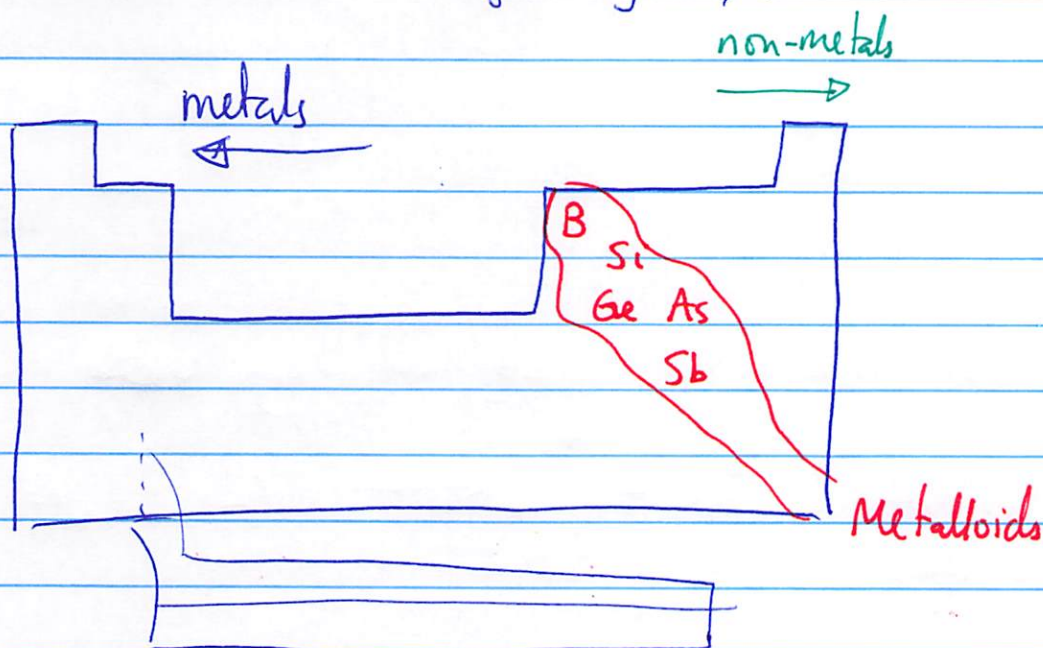 non-metals
metals
B
Si
Ge As
Sb
Metalloids